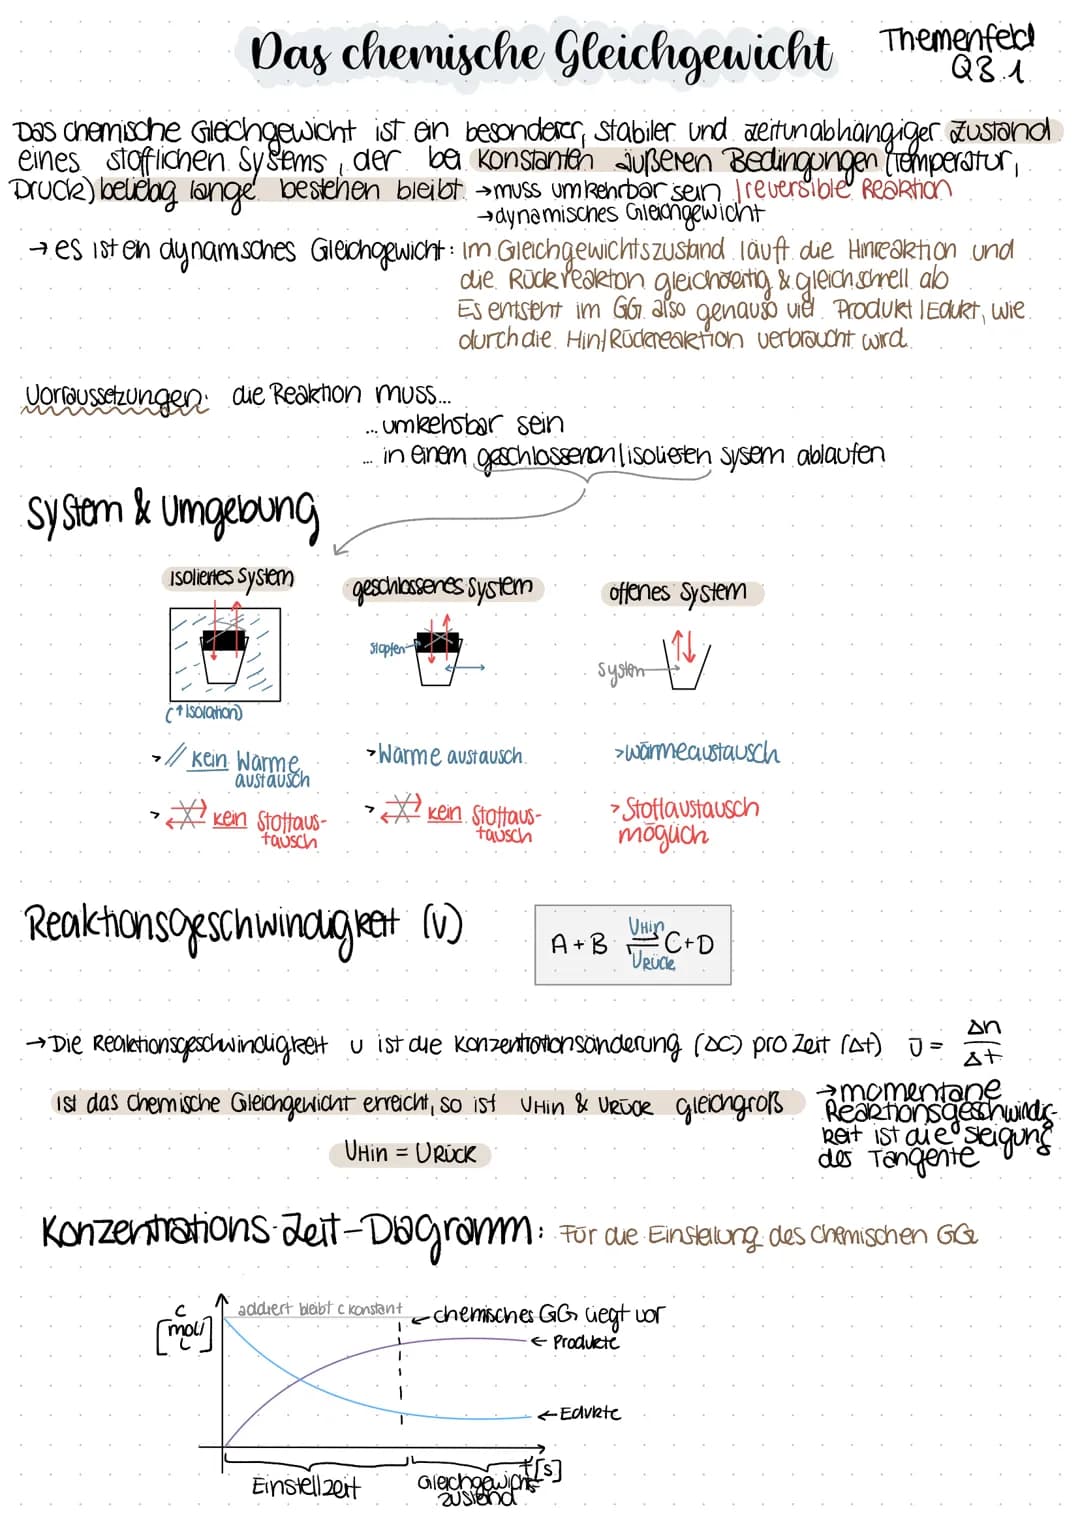 Das chemische Gleichgewicht
Themenfeld
Q3.1
Das chemische Gleichgewicht ist ein besonderer, stabiler und zeitunabhängiger Zustand
eines stofflichen Systems, der bei konstanten äußeren Bedingungen (Temperatur,
Druck) beliebig lange bestehen bleibt → muss umkehrbar sein | reversible Reaktion
→ dynamisches Gleichgewicht
→ es ist ein dynamisches Gleichgewicht: Im Gleichgewichtszustand läuft die Hinreaktion und
die Rückreaktion gleichzeitig & gleichschnell ab
Es entsteht im GG also genauso viel Produkt | Edukt, wie
durch die Hin/Rückreaktion verbraucht wird.
Vorraussetzungen: die Reaktion muss...
... umkehrbar sein
... in einem geschlossenen | isolierten System ablaufen
System & Umgebung
isoliertes System
geschlossenes System
offenes System
Stopfen
System
(↑ Isolation)
> // kein Wärme
austausch
> Wärme austausch
> wärmeaustausch
> kein Stoffaus-
tausch
> kein Stoffaus-
tausch
> Stoffaustausch
möglich
Reaktionsgeschwindigkeit (v)
A + B ⇌ C + D
VHin
VRück
→ Die Reaktionsgeschwindigkeit v ist die Konzentrationsänderung (Δc) pro Zeit (Δt) v̄ = Δn
Δt
Ist das chemische Gleichgewicht erreicht, so ist VHin & VRÜCK gleichgroß
→ momentane
Reaktionsgeschwindig-
keit ist die Steigung
des Tangente
VHin = VRÜCK
Konzentrations-Zeit-Diagramm: Für die Einstellung des chemischen GG
c
[mol/L]
addiert bleibt c konstant
← chemisches GG liegt vor
← Produkte
← Edukte
t [s]
Einstellzeit
Gleichgewichts
zustand